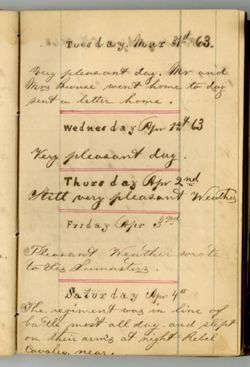 Tuesday Mar 31st 63.
Very pleasant day. Mr and
Mrs House went home to day
sent a letter home.
Wednesday Apr 1st 63
Very pleasant day.
Thursday Apr 2nd
Still very pleasant Weather
Friday Apr 3rd
Pleasant Weather wrote
to
Saturday Apr 4th
The regiment was in line of
battle most all day and slept
on their arms at night Rebel
Cavalry near.